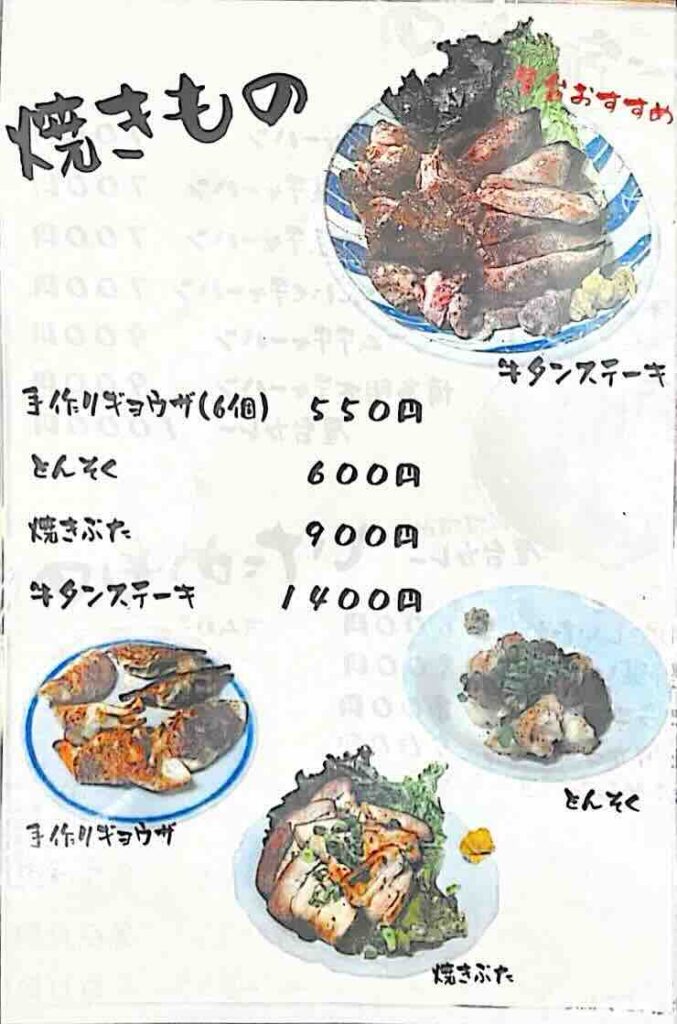 焼きもの
屋台おすすめ
牛タンステーキ
手作りギョウザ(6個) 550円
とんそく 600円
焼きぶた 900円
牛タンステーキ 1400円
とんそく
手作りギョウザ
焼きぶた